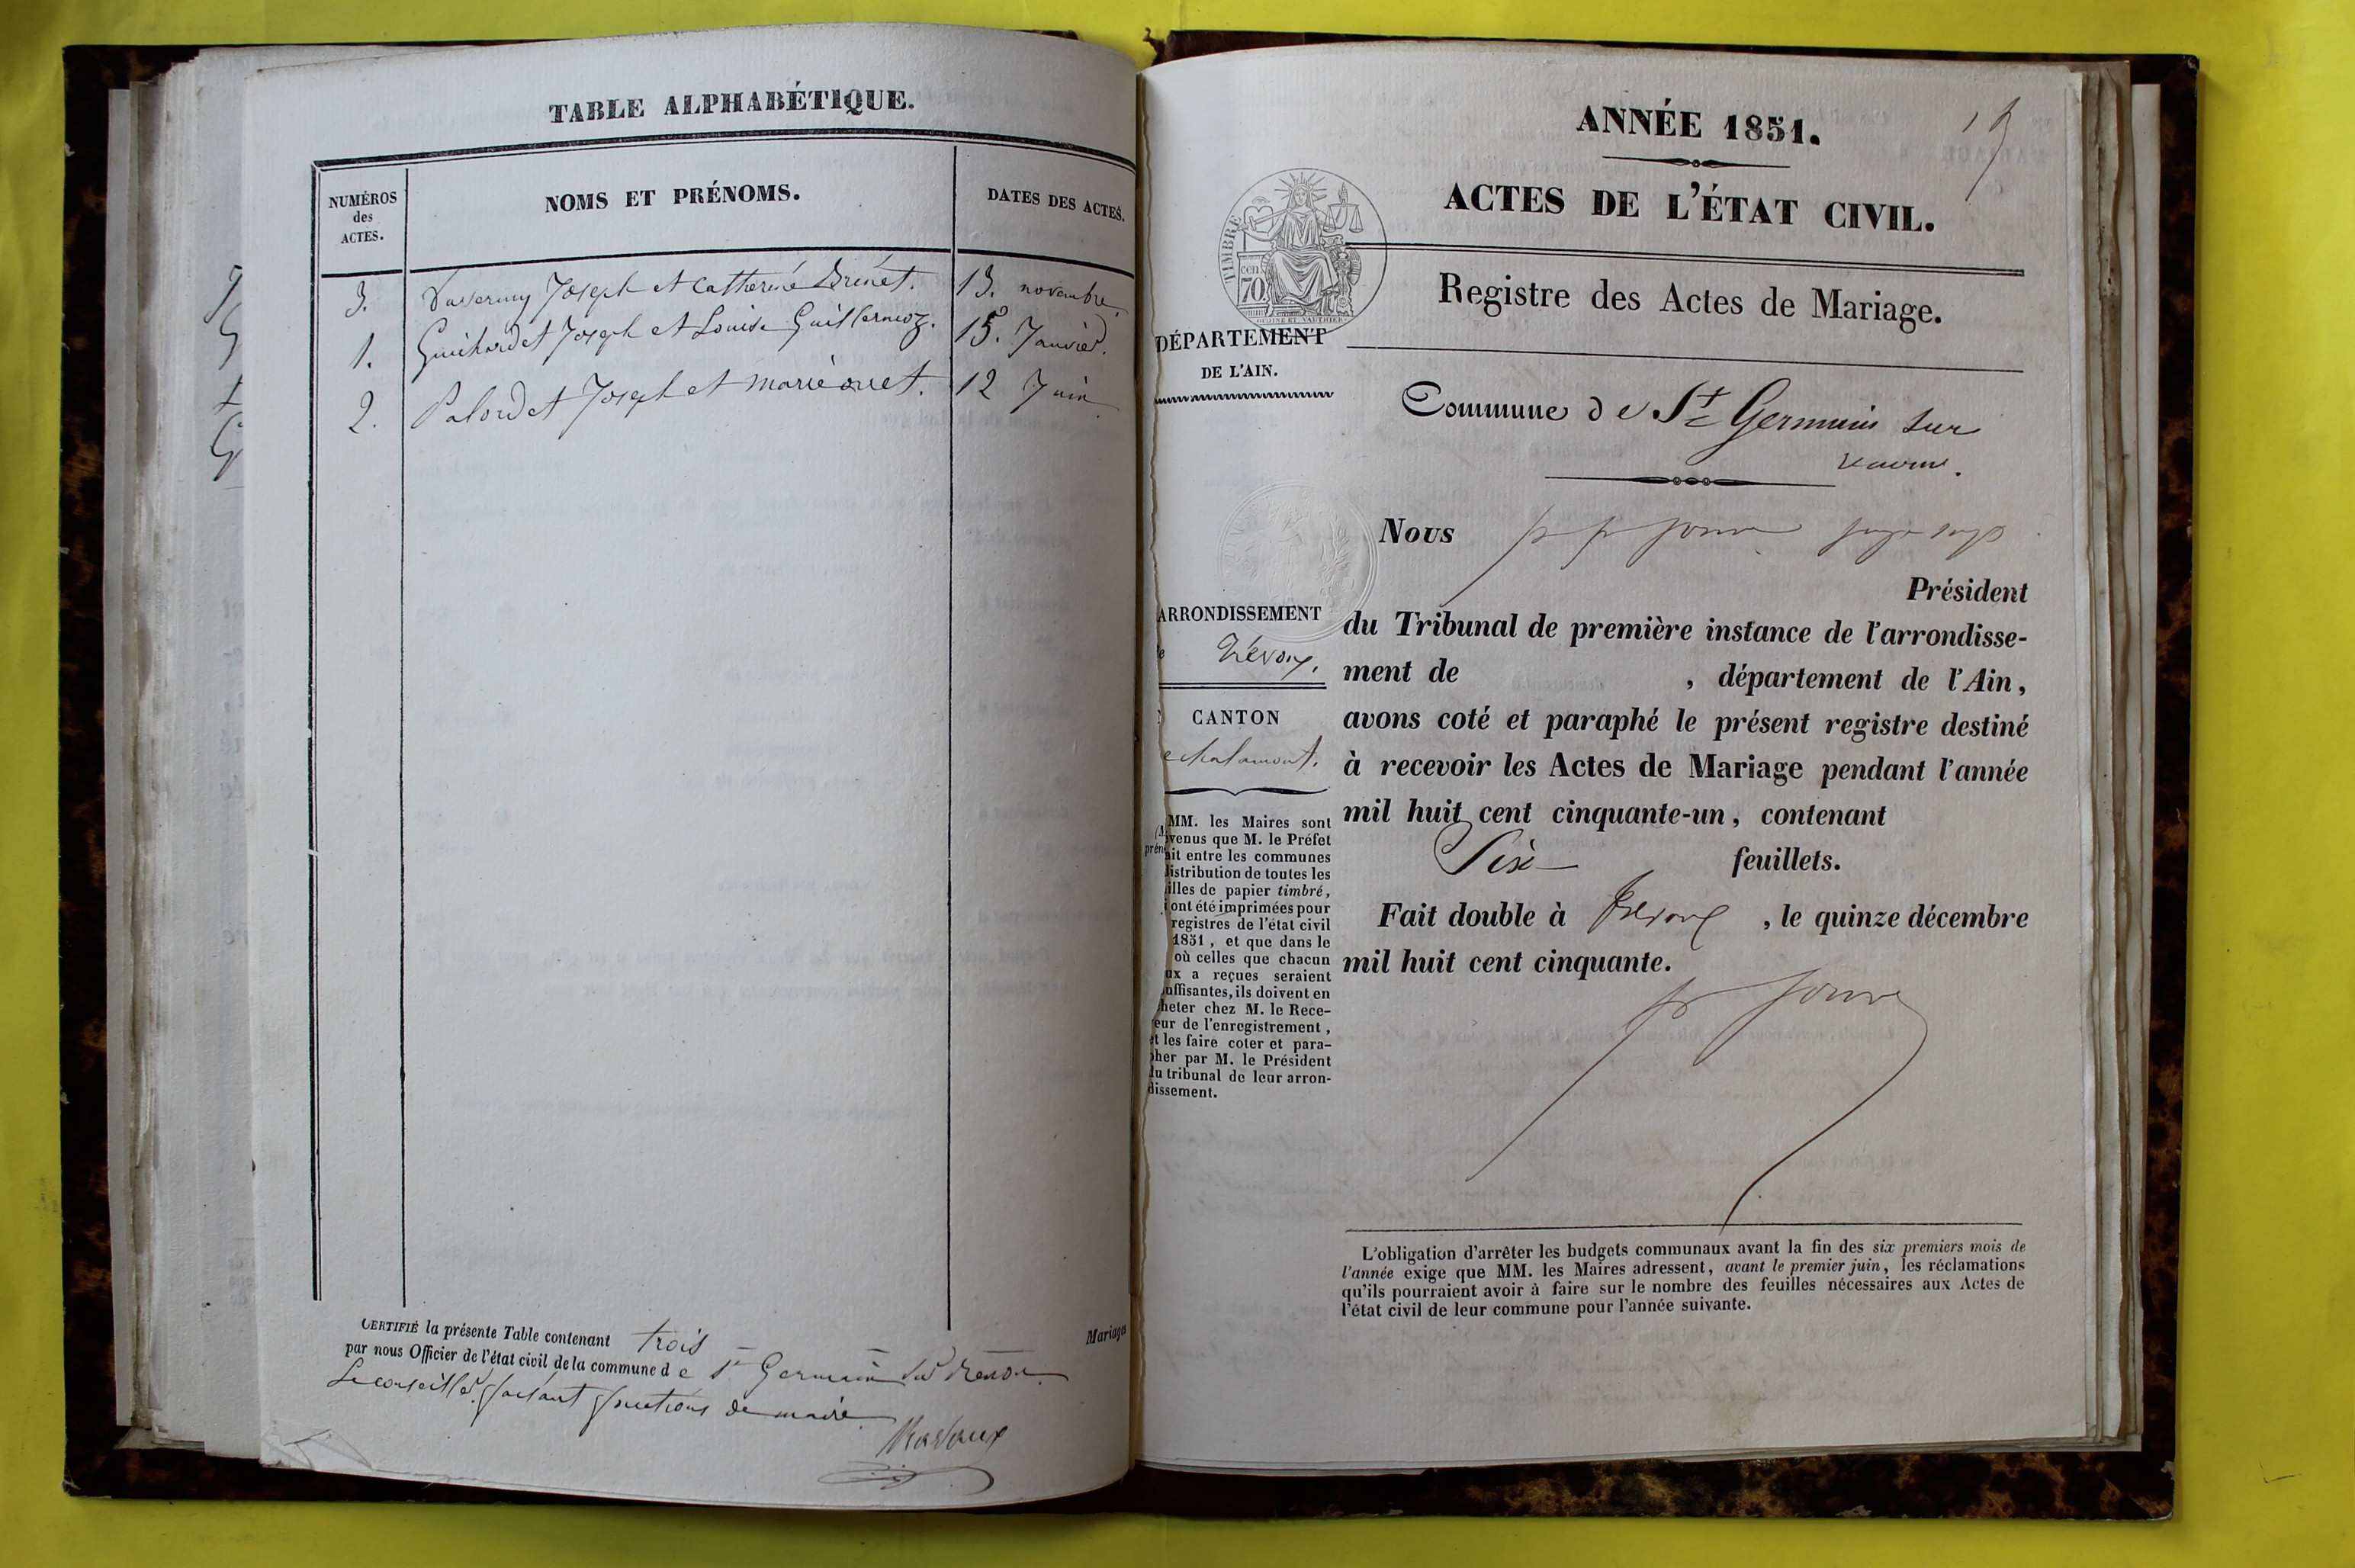 TABLE ALPHABÉTIQUE.
NUMÉROS
des
ACTES.
NOMS ET PRÉNOMS.
DATES DES ACTES.
3. Joseph et Catherine Brunet. 13. novembre
1. Guichardet Joseph et Louise Guillermoz. 15. Janvier.
2. Palordet Joseph et marie 12 Juin
CERTIFIÉ la présente Table contenant trois Mariages
par nous Officier de l'état civil de la commune de St Germain sur Renon.
Le conseiller faisant fonctions de maire
ANNÉE 1851.
ACTES DE L'ÉTAT CIVIL.
TIMBRE
70
cen
Registre des Actes de Mariage.
DÉPARTEMENT
DE L'AIN.
Commune de St Germain sur
Nous
Président
ARRONDISSEMENT
Trévoux.
CANTON
Chalamont.
du Tribunal de première instance de l'arrondisse-
ment de , département de l'Ain,
avons coté et paraphé le présent registre destiné
à recevoir les Actes de Mariage pendant l'année
mil huit cent cinquante-un, contenant
Six feuillets.
Fait double à Trévoux, le quinze décembre
mil huit cent cinquante.
MM. les Maires sont
venus que M. le Préfet
ait entre les communes
distribution de toutes les
illes de papier timbré,
ont été imprimées pour
registres de l'état civil
1851, et que dans le
où celles que chacun
ux a reçues seraient
uffisantes, ils doivent en
heter chez M. le Rece-
eur de l'enregistrement,
et les faire coter et para-
pher par M. le Président
du tribunal de leur arron-
dissement.
L'obligation d'arrêter les budgets communaux avant la fin des six premiers mois de
l'année exige que MM. les Maires adressent, avant le premier juin, les réclamations
qu'ils pourraient avoir à faire sur le nombre des feuilles nécessaires aux Actes de
l'état civil de leur commune pour l'année suivante.